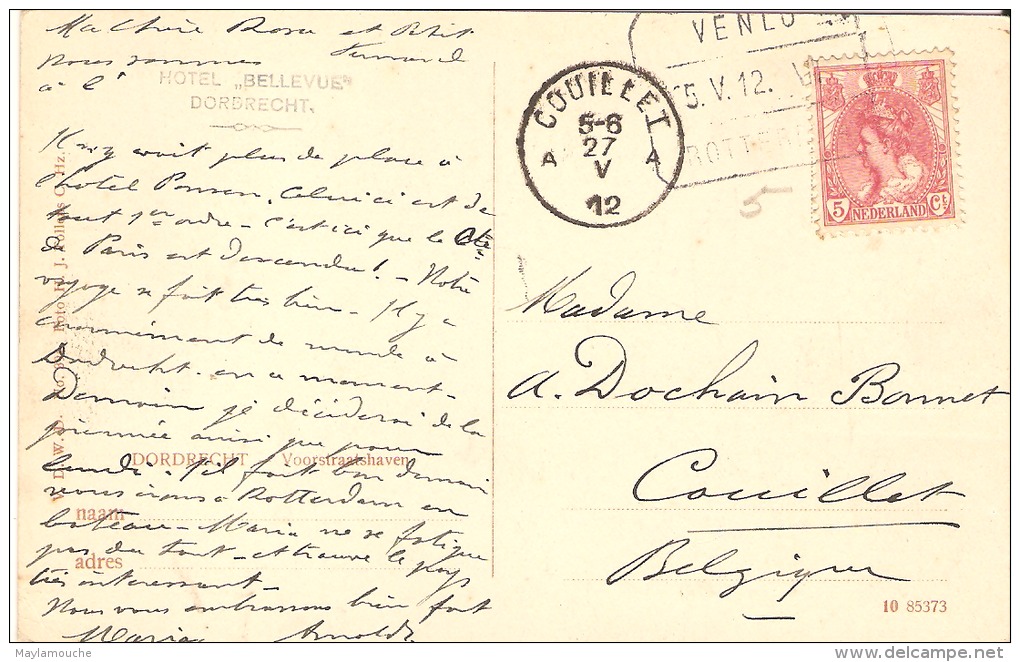 Ma Chère Rosa et Petit
Fernand
nous sommes
à l'
HOTEL „BELLEVUE"
DORDRECHT.
Il n'y avait plus de place à
l'hotel Ponsen. Celui ici est de
tout 1er ordre - c'est ici que le Cte
de Paris est descendu! - Notre
voyage se fait très bien - Il y a
énormément de monde à
Dordrecht en ce moment -
Demain je déciderai de la
journée ainsi que pour
lundi. S'il fait bon demain
nous irons à Rotterdam en
bateau - Maria ne se fatigue
pas du tout - et trouve le pays
très intéressant -
Nous vous embrassons bien fort
Maria Arnold
DORDRECHT Voorstraatshaven
naam
adres
COUILLET
5-6
27
V
12
A A
VENLO
5.V.12.
ROTTERD
5
5 NEDERLAND Ct
Madame
A. Dochain Bonnet
Couillet
Belgique
10 85373
Maylamouche
www.delcampe.net